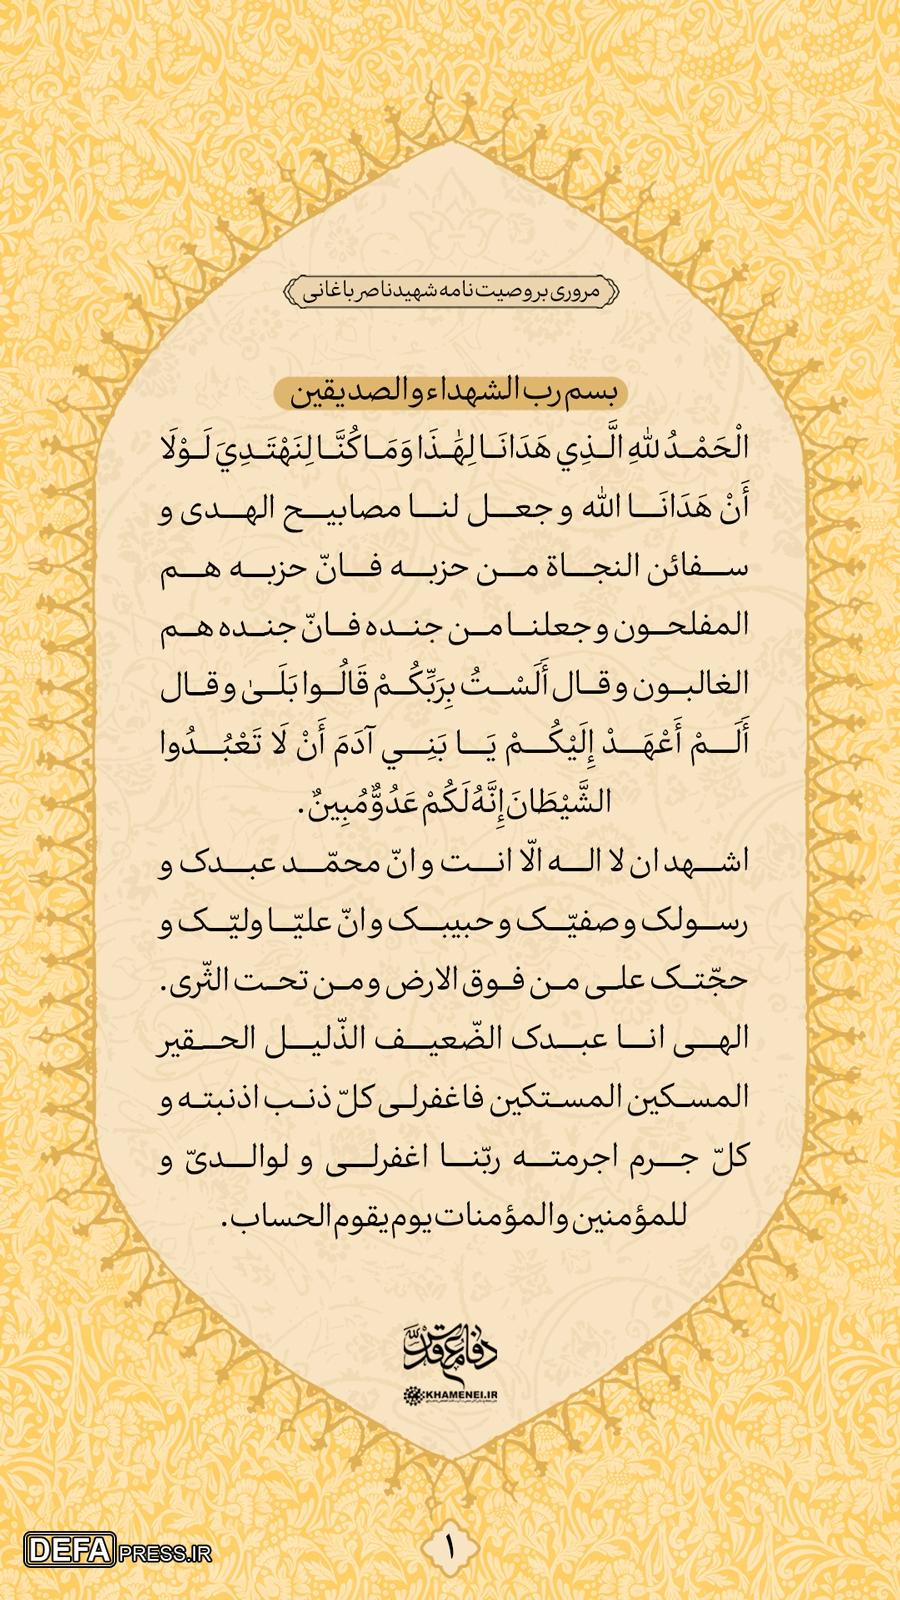 مروری بر وصیت نامه شهید ناصر باغانی
بسم رب الشهداء و الصدیقین
الْحَمْدُ للهِ الَّذِي هَدَانَا لِهَٰذَا وَمَا كُنَّا لِنَهْتَدِيَ لَوْلَا
أَنْ هَدَانَا الله و جعل لنا مصابیح الهدی و
سفائن النجاة من حزبه فانّ حزبه هم
المفلحون و جعلنا من جنده فانّ جنده هم
الغالبون و قال أَلَسْتُ بِرَبِّكُمْ قَالُوا بَلَىٰ و قال
أَلَمْ أَعْهَدْ إِلَيْكُمْ يَا بَنِي آدَمَ أَنْ لَا تَعْبُدُوا
الشَّيْطَانَ إِنَّهُ لَكُمْ عَدُوٌّ مُبِينٌ.
اشهد ان لا اله الّا انت و انّ محمّد عبدک و
رسولک و صفیّک و حبیبک و انّ علیّا ولیّک و
حجّتک علی من فوق الارض و من تحت الثّری.
الهی انا عبدک الضّعیف الذّلیل الحقیر
المسکین المستکین فاغفرلی کلّ ذنب اذنبته و
کلّ جرم اجرمته ربّنا اغفرلی و لوالدیّ و
للمؤمنین و المؤمنات یوم یقوم الحساب.
دفاع مقدس
KHAMENEI.IR
۱
DEFAPRESS.IR